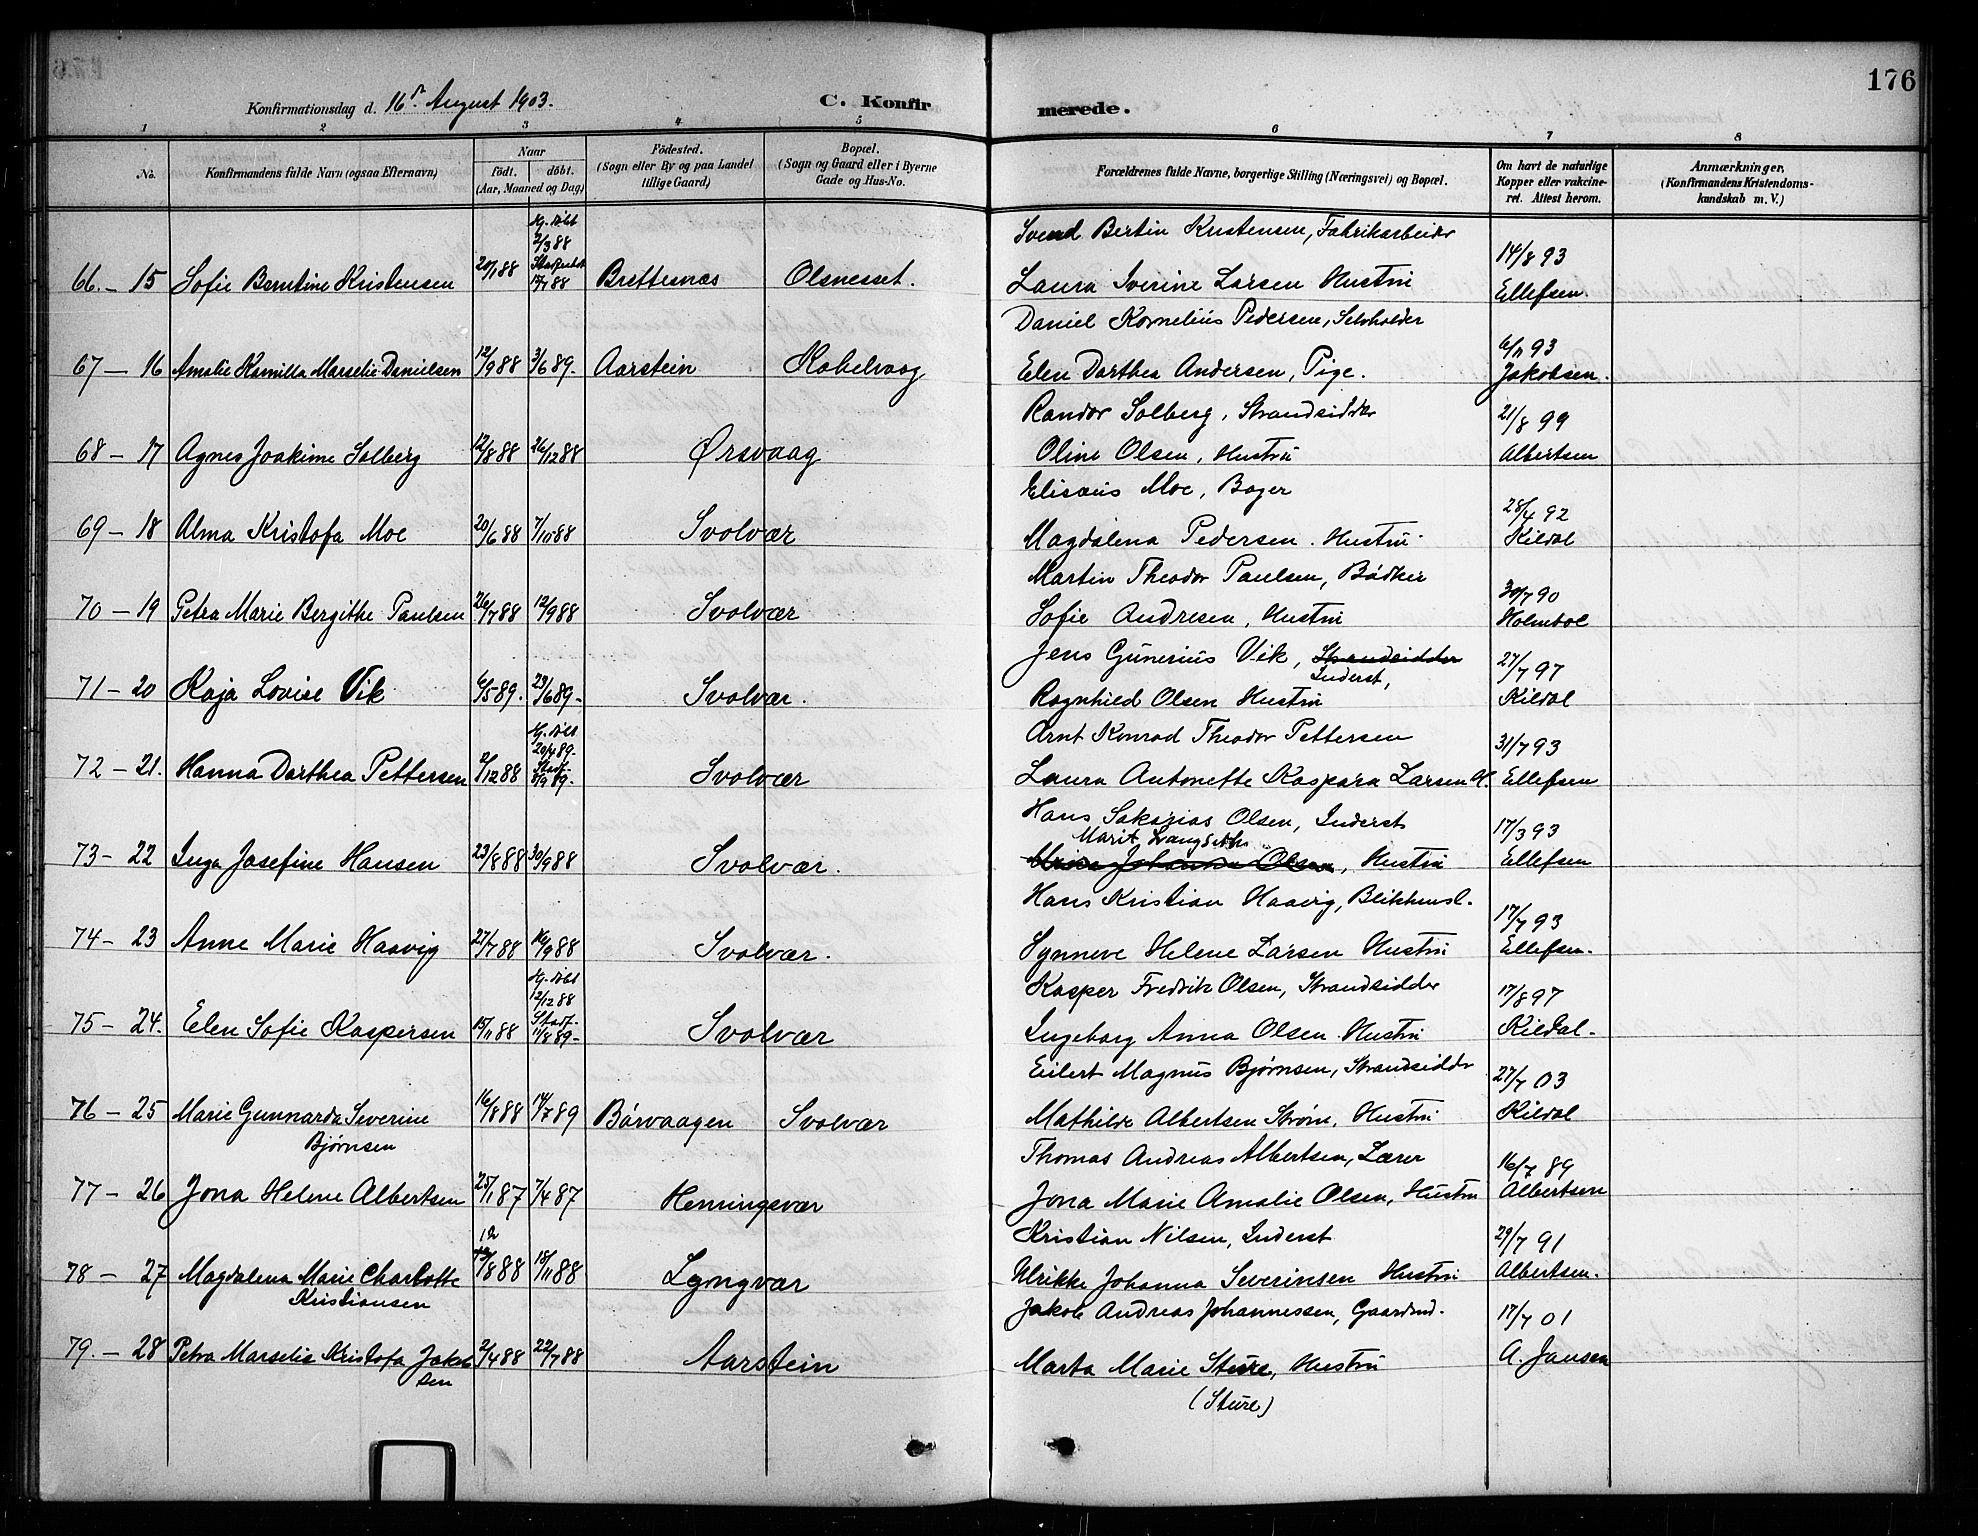 176
Konfirmationsdag d. 16de August 1903.
C. Konfirmerede.
1 2 3 4 5 6 7 8
No.
Konfirmandens fulde Navn (ogsaa Efternavn)
Naar
födt. döbt.
(Aar, Maaned og Dag)
Födested.
(Sogn eller By og paa Landet
tillige Gaard)
Bopæl.
(Sogn og Gaard eller i Byerne
Gade og Hus-No.
Forældrenes fulde Navne, borgerlige Stilling (Næringsvei) og Bopæl.
Om havt de naturlige
Kopper eller vakcine-
ret. Attest herom.
Anmærkninger.
(Konfirmandens Kristendoms-
kundskab m. V.)
Hj. döbt
2/3 88
Svend Bertin Kristensen, Fabrikarbeider
14/8 93
66. – 15 Sofie Berntine Kristensen 20/1 88 Brettesnæs Olsnesset. Laura Iverine Larsen Hustru Ellefsen.
Daniel Kornelius Pedersen, Selvholder
6/7 93
67 – 16 Amalie Kamilla Marselie Danielsen 12/9 88 3/6 89. Aarstein Kabelvaag Elen Dorthea Andersen, Pige. Jakobsen.
Randor Solberg, Strandsidder
21/8 99
68 – 17 Agnes Joakime Solberg 12/8 88 26/12 88 Ørsvaag Oline Olsen, Hustru Albertsen
Elisæus Moe, Bager
28/4 92
69 – 18 Alma Kristofa Moe 20/6 88 7/10 88 Svolvær Magdalena Pedersen. Hustru. Kildal
Martin Theodor Paulsen, Bödker
30/7 90
70 – 19 Petra Marie Bergithe Paulsen 26/7 88 12/9 88 Svolvær Sofie Andresen, Hustru Holmboe
Jens Gunerius Vik, Strandsidder
Inderst,
27/7 97
71 – 20 Kaja Lovise Vik 6/5 89. 23/6 89. Svolvær. Ragnhild Olsen Hustru Kildal
Hj. döbt
20/4 89.
Arnt Konrad Theodor Pettersen
31/7 93
72 – 21. Hanna Dorthea Pettersen 2/12 88 Stadf. 8/9 89. Svolvær Laura Antonette Kaspara Larsen H. Ellefsen
Hans Sakarias Olsen, Inderst
Marit Langseth
17/3 93
73 – 22 Inga Josefine Hansen 23/8 88 30/9 88 Svolvær. Johanna Olsen, Hustru Ellefsen
Hans Kristian Haavig, Blikkensl.
17/7 93
74 – 23 Anne Marie Haavig 27/7 88 16/9 88 Svolvær. Synneve Helene Larsen Hustru Ellefsen.
Hj. döbt
12/12 88
Kasper Fredrik Olsen, Strandsidder
17/8 97
75 – 24. Elen Sofie Kaspersen 15/11 88 Stadf. 11/8 89. Svolvær Ingeborg Anna Olsen. Hustru Kildal.
Eilert Magnus Bjørnsen, Strandsidder
27/7 03
76 – 25 Marie Gunnarda Severine 16/8 88 14/7 89 Börvaagen Svolvær Mathilde Albertsen Strøm, Hustru Kildal
Bjørnsen
Thomas Andreas Albertsen, Lærer
16/7 89
77 – 26 Jona Helene Albertsen 25/1 87 7/4 87 Henningsvær Jona Marie Amalie Olsen, Hustru Albertsen
Kristian Nilsen, Inderst
29/7 91
78 – 27 Magdalena Marie Charlotte 12/8 88 18/11 88 Lyngvær Ulrikke Johanna Severinsen Hustru Albertsen.
Kristiansen
Jakob Andreas Johannessen, Gaardmd.
17/7 01
79. – 28 Petra Marselie Kristofa Jakob 2/4 88 22/7 88 Aarstein Marta Marie Sture, Hustru A. Jansen
sen
(Sture)